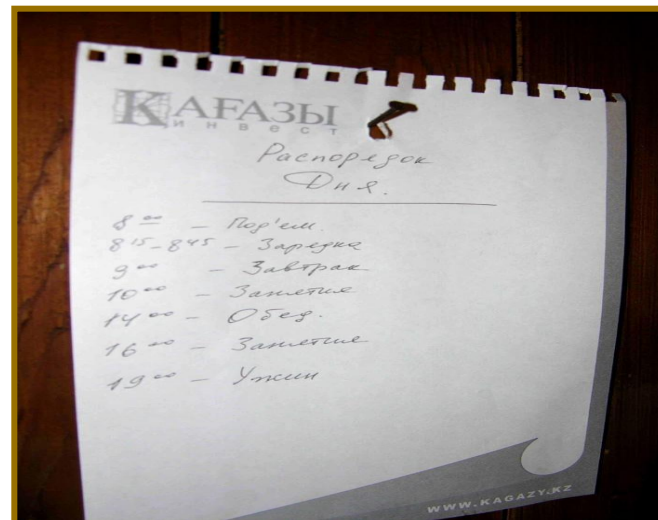 ҚАҒАЗЫ
ИНВЕСТ
Распорядок
Дня.
8 00 – Под'ем.
8 15 – 8 45 – Зарядка
9 00 – Завтрак
10 00 – Занятие
14 00 – Обед.
16 00 – Занятие
19 00 – Ужин
WWW.KAGAZY.KZ